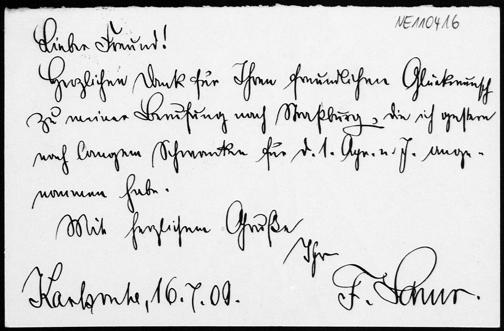 NE110416
Lieber Freund!
Herzlichen Dank für Ihren freundlichen Glückwunsch
zu meiner Berufung nach Straßburg, die ich gestern
nach langem Schwanken für d. 1. Apr. n. J. ange-
nommen habe.
Mit herzlichem Gruße
Ihr
Karlsruhe, 16.7.09. F. Schur.